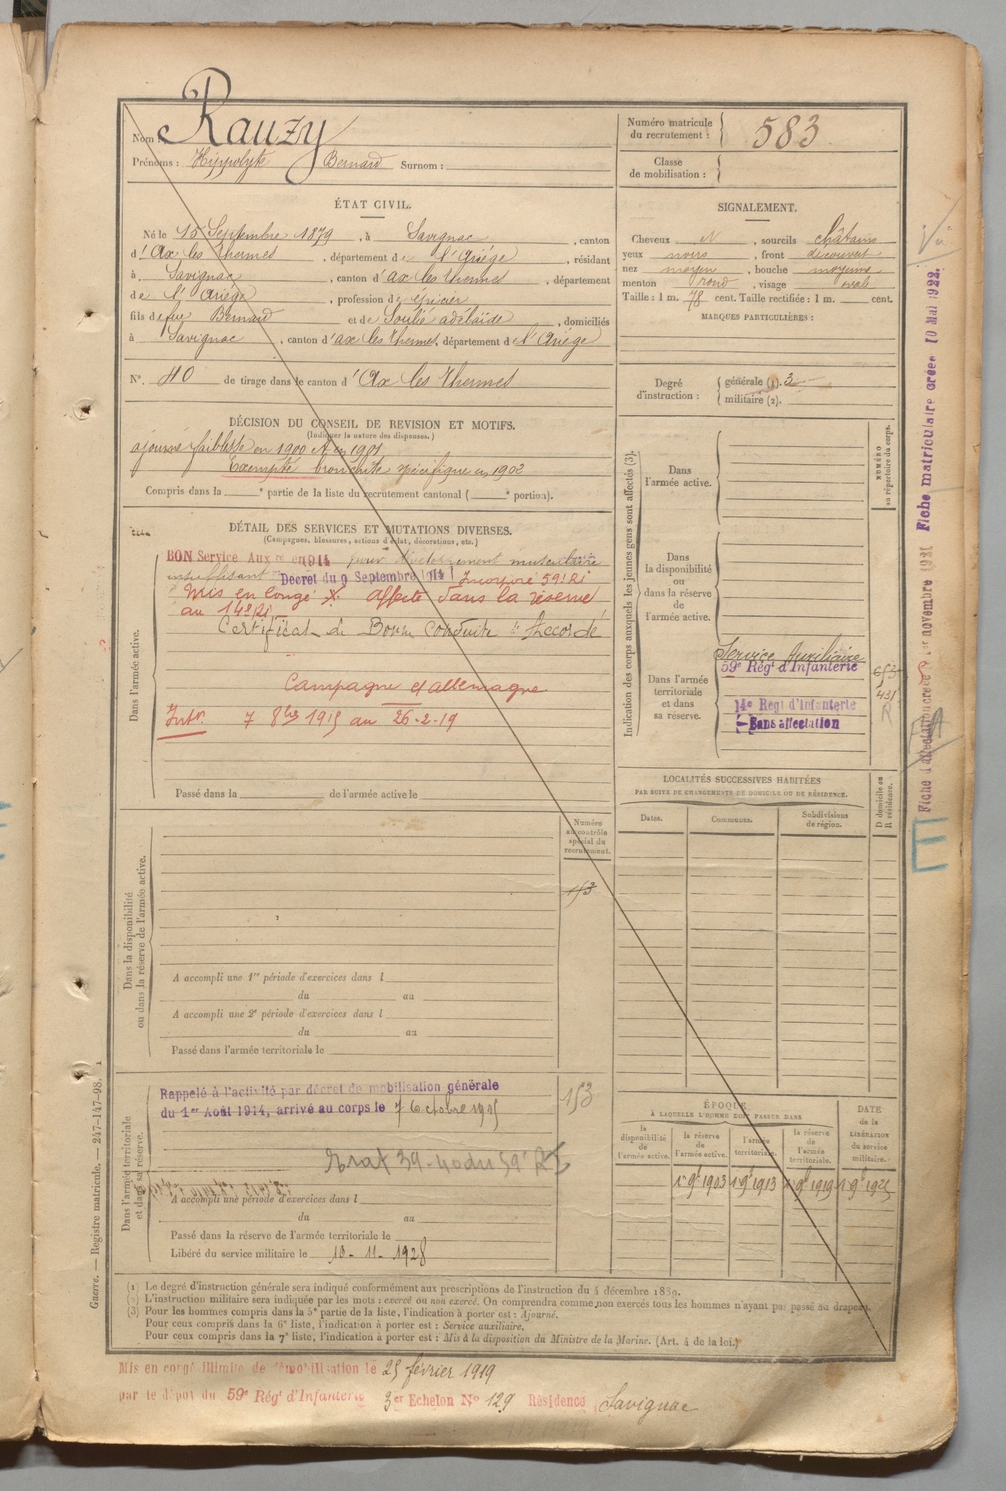 Nom : Rauzy
Prénoms : Hippolyte Bernard Surnom :
Numéro matricule du recrutement : 583
Classe de mobilisation :
ÉTAT CIVIL.
Né le 15 Septembre 1879, à Savignac, canton
d'Ax les Thermes, département de l'Ariége, résidant
à Savignac, canton d'ax les thermes, département
de l'Ariége, profession d'épicier
fils de feu Bernard et de Soulié adélaïde, domiciliés
à Savignac, canton d'ax les Thermes, département de l'Ariége
N° 40 de tirage dans le canton d'Ax les Thermes
SIGNALEMENT.
Cheveux N, sourcils châtains
yeux noirs, front découvert
nez moyen, bouche moyenne
menton rond, visage ovale
Taille : 1 m. 78 cent. Taille rectifiée : 1 m. cent.
MARQUES PARTICULIÈRES :
Degré d'instruction : générale (1). 3
militaire (2).
DÉCISION DU CONSEIL DE REVISION ET MOTIFS.
(Indiquer la nature des dispenses.)
ajourné faiblesse en 1900 et en 1901
Exempté bronchite spécifique en 1902
Compris dans la e partie de la liste du recrutement cantonal ( e portion).
DÉTAIL DES SERVICES ET MUTATIONS DIVERSES.
(Campagnes, blessures, actions d'éclat, décorations, etc.)
Dans l'armée active.
BON Service Aux re en 1914 pour développement musculaire
insuffisant Décret du 9 Septembre 1914 Incorporé 59e RI
Mis en congé X affecté dans la réserve
au 14e RI
Certificat de Bonne Conduite "Accordé"
Campagne c/ allemagne
Intr. 7 8bre 1915 au 26-2-19
Passé dans la de l'armée active le
Indication des corps auxquels les jeunes gens sont affectés (3).
NUMÉRO au répertoire du corps.
Dans l'armée active.
Dans la disponibilité ou dans la réserve de l'armée active.
Dans l'armée territoriale et dans sa réserve.
Service Auxiliaire
59e Régt d'Infanterie
14e Régt d'Infanterie
Sans affectation
431
R
LOCALITÉS SUCCESSIVES HABITÉES
PAR SUITE DE CHANGEMENTS DE DOMICILE OU DE RÉSIDENCE.
Dates. Communes. Subdivisions de région.
D domicile ou R résidence.
Dans la disponibilité ou dans la réserve de l'armée active.
Numéro au contrôle spécial du recrutement.
153
A accompli une 1re période d'exercices dans l
du au
A accompli une 2e période d'exercices dans l
du au
Passé dans l'armée territoriale le
Dans l'armée territoriale et dans sa réserve.
Rappelé à l'activité par décret de mobilisation générale
du 1er Août 1914, arrivé au corps le 7 Octobre 1915
153
A accompli une période d'exercices dans l
du au
Passé dans la réserve de l'armée territoriale le
Libéré du service militaire le 10-11-1928
ÉPOQUE
À LAQUELLE L'HOMME DOIT PASSER DANS
la disponibilité de l'armée active.
la réserve de l'armée active.
l'armée territoriale.
la réserve de l'armée territoriale.
DATE de la LIBÉRATION du service militaire.
1er 9bre 1903 1er 9bre 1913 1er 9bre 1919 1er 9bre 1925
(1) Le degré d'instruction générale sera indiqué conformément aux prescriptions de l'instruction du 4 décembre 1889.
(2) L'instruction militaire sera indiquée par les mots : exercé ou non exercé. On comprendra comme non exercés tous les hommes n'ayant pas passé au drapeau.
(3) Pour les hommes compris dans la 5e partie de la liste, l'indication à porter est : Ajourné.
Pour ceux compris dans la 6e liste, l'indication à porter est : Service auxiliaire.
Pour ceux compris dans la 7e liste, l'indication à porter est : Mis à la disposition du Ministre de la Marine. (Art. 4 de la loi.)
Mis en congé illimité de démobilisation le 25 février 1919
par le dépôt du 59e Régt d'Infanterie 3er Echelon No 129 Résidence Savignac
Guerre. — Registre matricule. — 247-147-98.
Fiche matriculaire créée 10 Mai 1922.